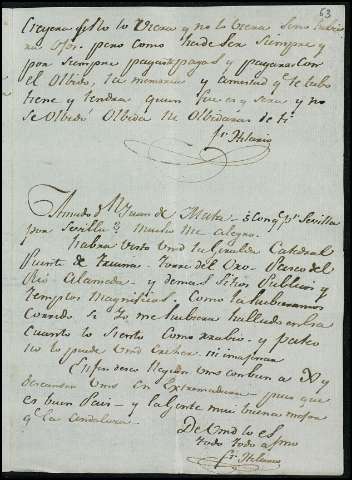 63
Creyera si No lo viera y no la viera sino
pero como hade Ser Siempre y
por siempre pagan pagas y pagaran con
el Olbido, la memoria y amistad qe. te tubo
tiene y tendra quien fue es y sera y no
se Olbidó Olbida ni Olbidara de ti
fr. Hilario
Amado D. Juan de Mata Sevilla
por Sevilla mucho me alegro.
habra visto Vmd la Giralda Catedral
Puente de Triana Torre del Oro Paseo del
Rio Alameda y demas Sitios Publicos y
Templos magnificos, Como la hubieramos
Corrido si Yo me hubiera hallado en esa
Cuanto lo siento Como rabio y pateo
no lo puede Vmd creher ni imaginar
En fin deseo lleguen Vms con bien a
descansar Vms en Extremadura pues que
es buen Pais y la Gente mui buena mejor
qe. la Andaluza.
De Vmd lo es
todo todo
fr. Hilario